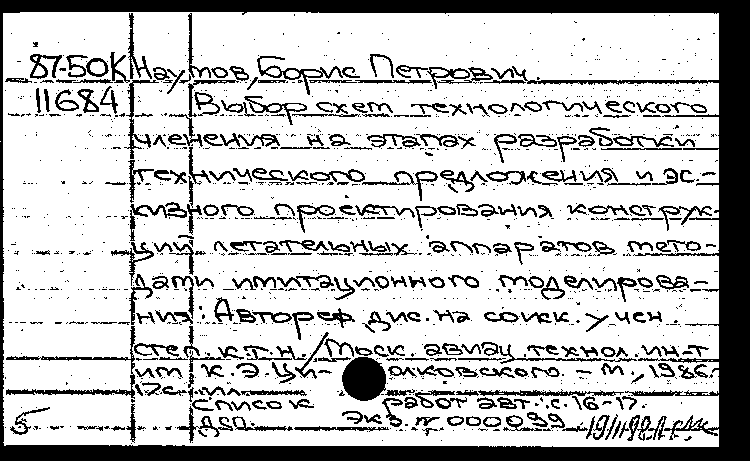 87-50К Наумов, Борис Петрович.
11684 Выбор схем технологического
членения на этапах разработки
технического предложения и эс-
кизного проектирования конструк-
ций летательных аппаратов мето-
дами имитационного моделирова-
ния: Автореф дис. на соиск. учен.
степ. к.т.н. / Моск. авиац. технол. ин-т
им К.Э. Ци- олковского. - М., 1986.
17с ил.
Список работ авт.: с. 16-17.
5 ДСП. Экз. № 000099